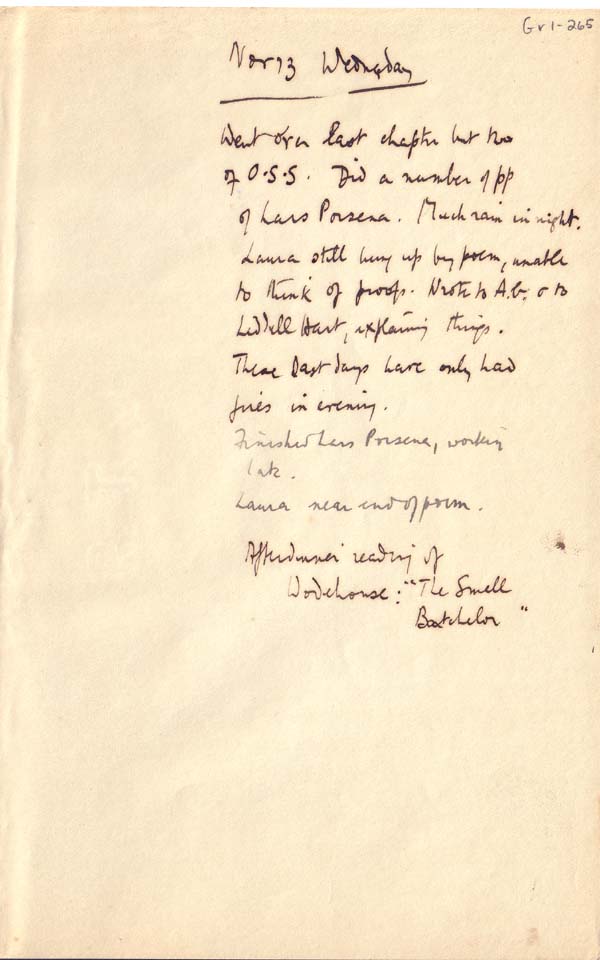 Gr1-265
Nov 13 Wednesday
Went over last chapter but two
of O.S.S. Did a number of pp
of Lars Porsena. Much rain in night.
Laura still hung up by poem, unable
to think of proofs. Wrote to A.B. & to
Liddell Hart, explaining things.
These last days have only had
fires in evening.
Finished Lars Porsena, working
late.
Laura near end of poem.
After dinner reading of
Wodehouse: "The Small
Batchelor"